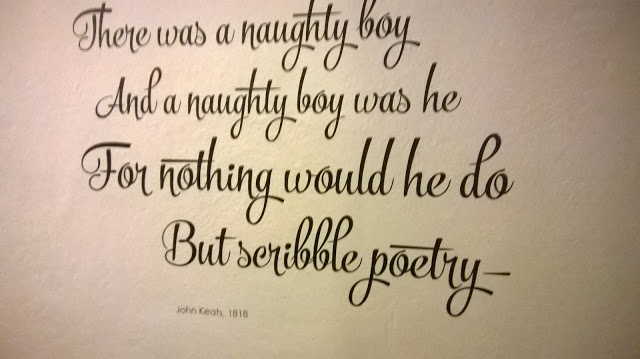 There was a naughty boy
And a naughty boy was he
For nothing would he do
But scribble poetry—
John Keats, 1818